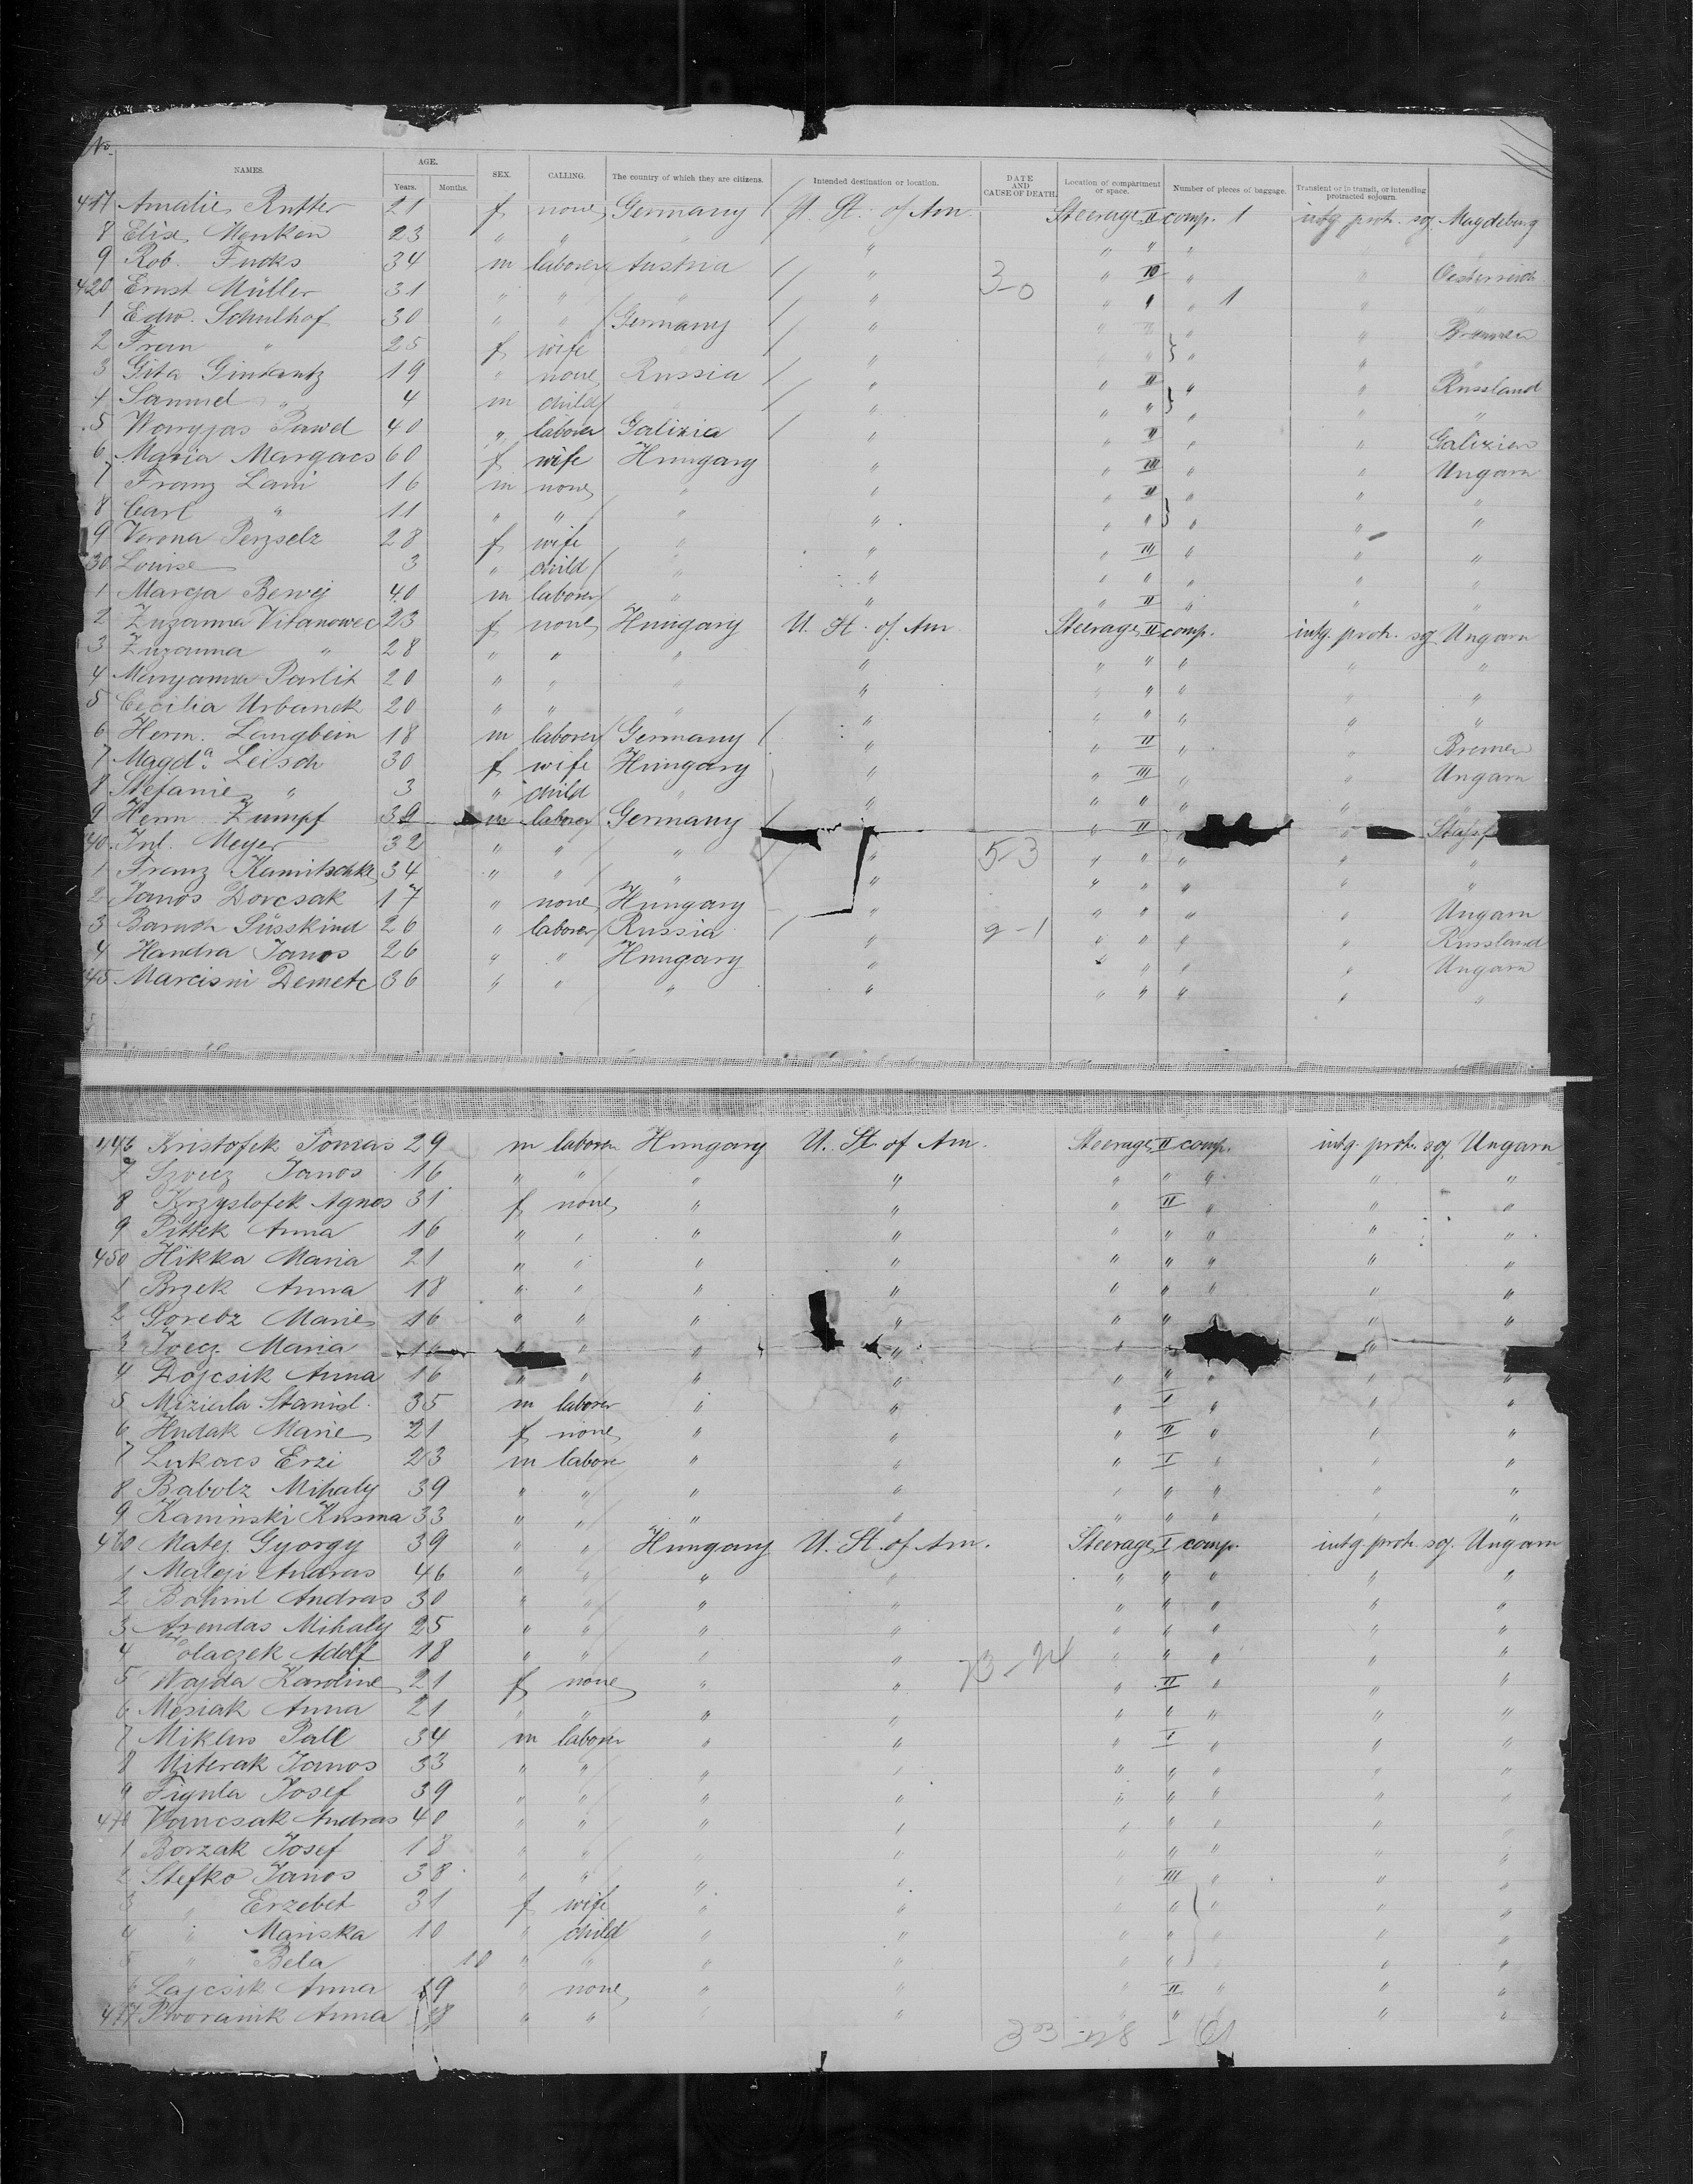 No. NAMES. AGE. Years. Months. SEX. CALLING. The country of which they are citizens. Intended destination or location. DATE AND CAUSE OF DEATH. Location of compartment or space. Number of pieces of baggage. Transient or in transit, or intending protracted sojourn.
417 Amalie Rutter 21 f none Germany / U. St. of Am. Steerage II comp. 1 intg. protr. soj. Magdeburg
8 Elise Menken 23 " " " " " " " "
9 Rob. Fucks 34 m laborer Austria / " " III " " Oesterreich
420 Ernst Müller 31 " " " / " 3-0 " I " 1 " "
1 Edw. Schulhof 30 " " Germany / " " II " " Bremen
2 Fran " 25 f wife " / " " " } " " "
3 Gita Gintantz 19 " none Russia / " " II " " Russland
4 Samuel " 4 m child " / " " " } " " "
5 Waryjas Pawel 40 " laborer Galizia / " " II " " Galizien
6 Maria Margacs 60 f wife Hungary " " III " " Ungarn
7 Franz Lani 16 m none " " " II " " "
8 Carl " 11 " " " " " " } " " "
9 Verona Perzselz 28 f wife " " " III " " "
30 Louise 3 " child " " " " " " "
1 Marcja Bewej 40 m laborer " " " II " " "
2 Zuzanna Vitanowec 23 f none Hungary U. St. of Am. Steerage II comp. intg. protr. soj. Ungarn
3 Zuzanna " 28 " " " " " " " " "
4 Maryanna Pavlit 20 " " " " " " " " "
5 Cecilia Urbanek 20 " " " " " " " " "
6 Herm. Langbein 18 m laborer Germany / " " II " " Bremen
7 Magda. Leisch 30 f wife Hungary " " III " " Ungarn
8 Stefanie " 3 " child " " " " " "
9 Herm Zumpf 39 m laborer Germany / " II "
40 Jul. Meyer 32 " " " / " 5-3 " " " " "
1 Franz Kamitschka 34 " " " / " " " " " "
2 Janos Dorcsak 17 " none Hungary " " " " " Ungarn
3 Baruch Süsskind 26 " laborer Russia / " 9-1 " " " " Russland
4 Handra Janos 26 " " Hungary " " " " " Ungarn
45 Marcisni Demetc 36 " " " " " " " " "
446 Kristofek Tomas 29 m laborer Hungary U. St. of Am. Steerage II comp. intg. protr. soj. Ungarn
7 Szvicz Janos 16 " " " " " " " " "
8 Krzystofek Agnes 31 f none " " " II " " "
9 Pittek Anna 16 " " " " " " " " "
450 Hikka Maria 21 " " " " " " " " "
1 Brzek Anna 18 " " " " " " " " "
2 Gorebz Marie 16 " " " " " " " " "
3 Ivecz Maria 16 " " " " " "
4 Dojcsik Anna 16 " " " " " " " " "
5 Miziala Stanisl. 35 m laborer " " " I " " "
6 Hudak Marie 21 f none " " " II " " "
7 Lukacs Erzi 23 m labore " " " I " " "
8 Babolz Mihaly 39 " " " " " " " " "
9 Kaminski Kusma 33 " " " " " " " " "
460 Matej Gyorgy 39 " " Hungary U. St. of Am. Steerage I comp. intg. protr. soj. Ungarn
1 Mateji Andras 46 " " " " " " " " "
2 Andras 30 " " " " " " " " "
3 Arendas Mihaly 25 " " " " " " " " "
4 Polaczek Adolf 18 " " " " " " " " "
5 Wajda Karoline 21 f none " " " II " " "
6 Mesiak Anna 21 " " " " " " " " "
7 Miklus Pall 34 m laborer " " " I " " "
8 Miterak Janos 33 " " " " " " " " "
9 Figula Josef 39 " " " " " " " " "
470 Wancsak Andras 40 " " " " " " " " "
1 Borzak Josef 18 " " " " " " " " "
2 Stefko Janos 38 " " " " " III " " "
3 " Erzebet 31 f wife " " " " " " "
4 " Mariska 10 " child " " " " " " "
5 " Bela 10 " " " " " " " " "
6 Lajcsik Anna 19 " none " " " II " " "
477 Dworanik Anna 18 " " " " " " " " "